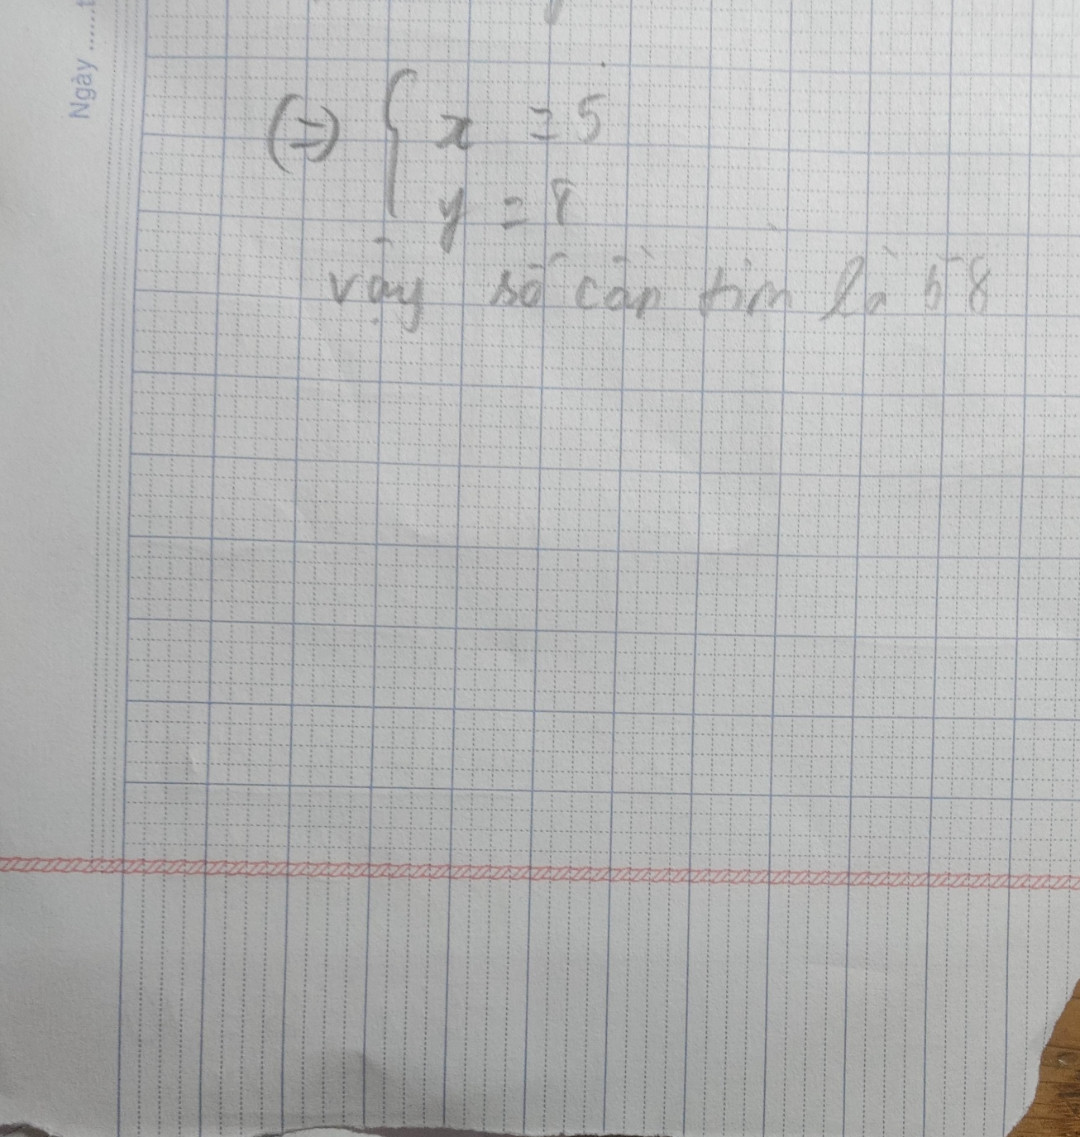 Ngày ......t
(=) { x = 5
y = 8
vậy số cần tìm là 58